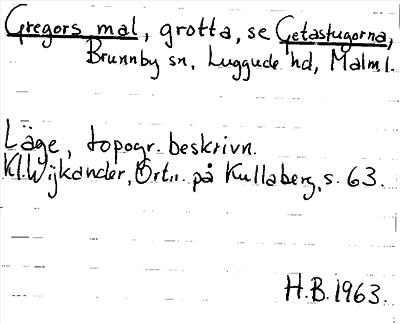 Gregors mal, grotta, se Getastugorna,
Brunnby sn, Luggude hd, Malml.
Läge, topogr. beskrivn.
Kl. Wijkander, Ortn. på Kullaberg, s. 63.
H.B. 1963.